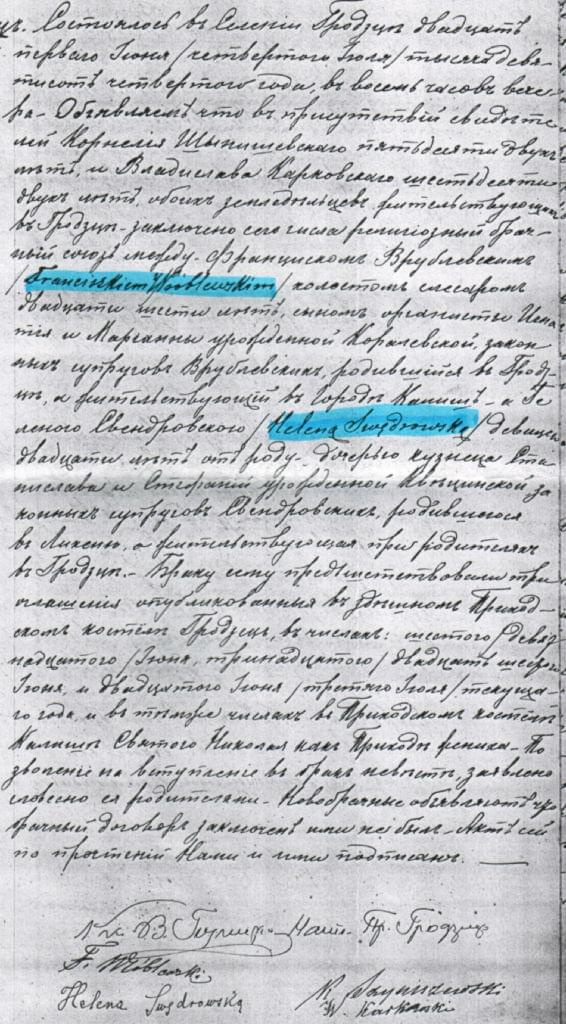 Состоялось въ Селеніи Гродзцъ двадцать
перваго Іюня /четвертаго Іюля/ тысяча девя-
тисотъ четвертаго года, въ восемь часовъ вече-
ра. Объявляемъ что въ присутствіи свидѣте-
лей Корнелія Шынишевскаго пятьдесяти двухъ
лѣтъ, и Владислава Карковскаго шестьдесяти
двухъ лѣтъ, обоихъ земледѣльцевъ, жительствующихъ
въ Гродзцѣ заключено сего числа религіозный брач-
ный союзъ между Францискомъ Врублевскимъ
/Franciszkiem Wróblewskim/ холостомъ слесаромъ
двадцати шести лѣтъ, сыномъ органисты Игна-
тія и Маріанны урожденной Коралевской, закон-
ныхъ супруговъ Врублевскихъ, родившійся въ Гродз-
цѣ, а жительствующій въ городѣ Калишѣ а Ге-
леного Свендровского /Helena Swędrowska/ девицею
двадцати лѣтъ отъ роду дочерью кузнеца Ста-
нислава и Стефаніи урожденной за-
конныхъ супруговъ Свендровскихъ, родившоюся
въ а жительствующая при родителяхъ
въ Гродзцѣ. Браку сему предшествовали три
оглашенія опубликованныя въ здѣшномъ Приход-
скомъ костелѣ Гродзецъ, въ числахъ: шестого /девят-
надцатого/ Іюня, тринадцатого /двадцать шестого/
Іюня, и двадцатого Іюня /третяго Іюля/ текуща-
го года и въ тѣхже числахъ въ Приходскомъ костелѣ
Калишъ Святого Николая какъ Приходѣ жениха. По-
зволеніе на вступленіе въ бракъ невѣсты, заявлено
словесно ея родителями. Новобрачные объявляютъ что
брачный договоръ заключенъ ими не былъ. Актъ сей
по прочтеніи Нами и ими подписанъ.
Кс. В. Наст. Пр. Гродзецъ
F. Wróblewski
Helena Swędrowska
K. Szyniszewski
W. Karkowski